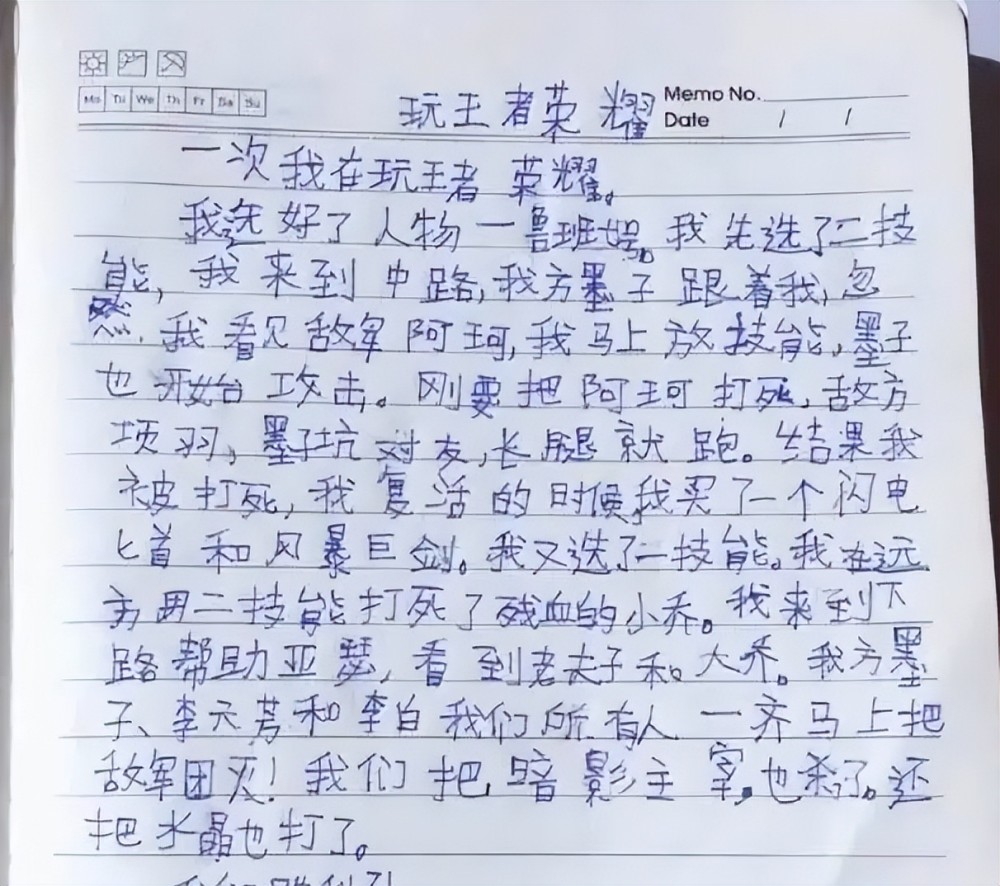 Mo Tu We Th Fr Sa Su
Memo No.
Date / /
玩王者荣耀
一次我在玩王者荣耀。
我选好了人物一鲁班7号。我先选了二技
能,我来到中路,我方墨子跟着我,忽
然,我看见敌军阿珂,我马上放技能,墨子
也开始攻击。刚要把阿珂打死,敌方
项羽,墨子坑对友,长腿就跑。结果我
被打死,我复活的时候,我买了一个闪电
匕首和风暴巨剑。我又选了二技能。我在远
方用二技能打死了残血的小乔。我来到下
路帮助亚瑟,看到老夫子和大乔。我方墨
子、李元芳和李白我们所有人一齐马上把
敌军团灭!我们把暗影主宰,也杀了。还
把水晶也打了。